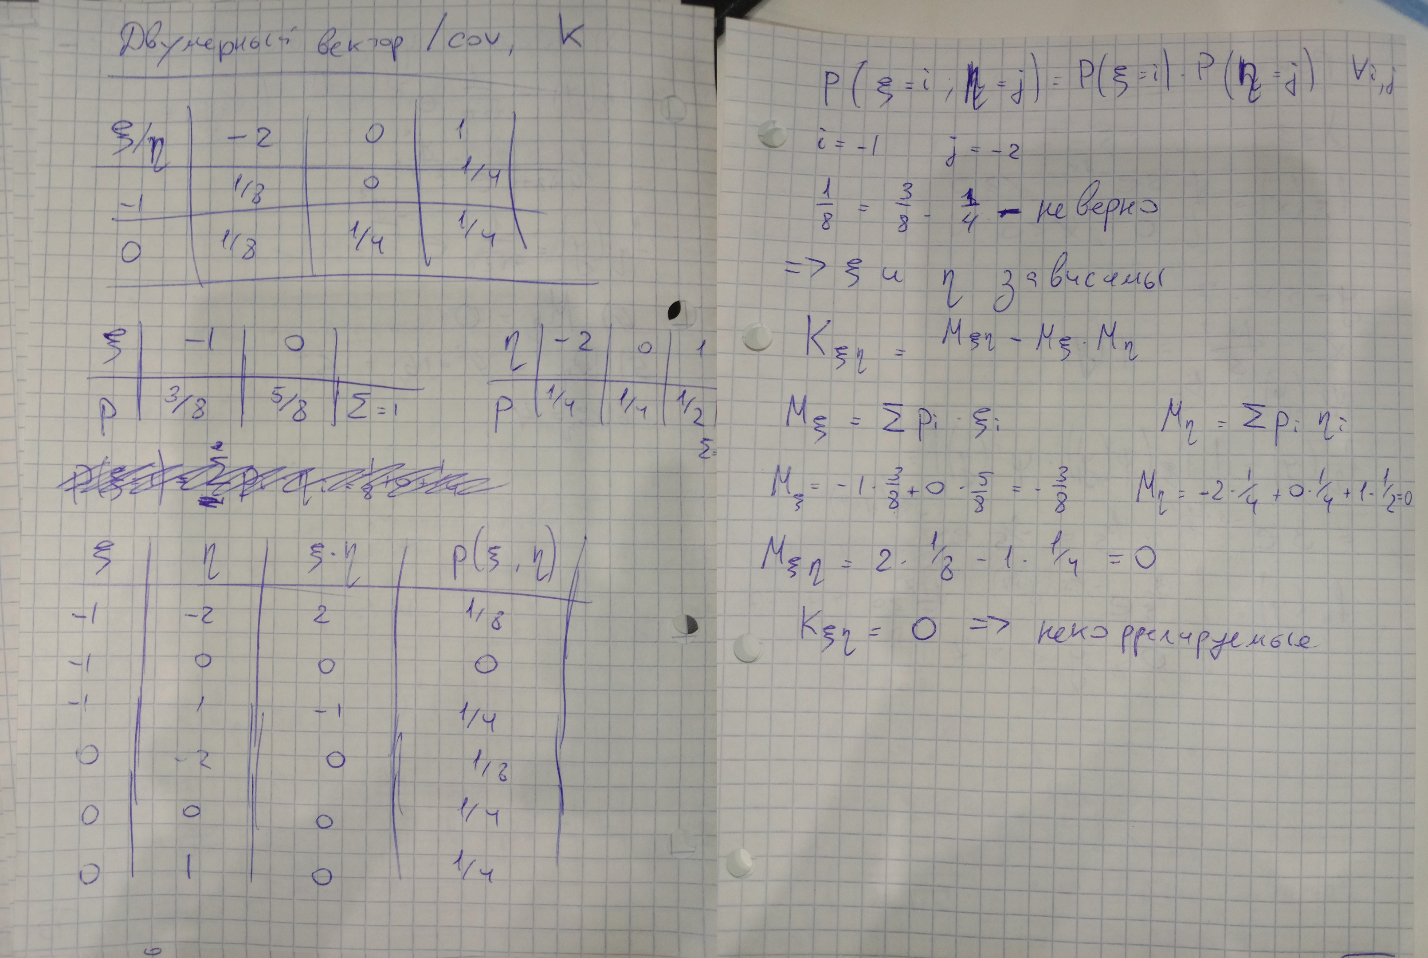 Двумерный вектор / cov, K
ξ/η -2 0 1
-1 1/8 0 1/4
0 1/8 1/4 1/4
ξ -1 0
P 3/8 5/8 Σ=1
η -2 0 1
P 1/4 1/4 1/2
Σ=
ξ η ξ·η P(ξ, η)
-1 -2 2 1/8
-1 0 0 0
-1 1 -1 1/4
0 -2 0 1/8
0 0 0 1/4
0 1 0 1/4
P(ξ=i; η=j) = P(ξ=i) · P(η=j) ∀i,j
i = -1 j = -2
1/8 = 3/8 · 1/4 - не верно
=> ξ и η зависимы
Kξη = Mξη - Mξ · Mη
Mξ = Σ pi · ξi Mη = Σ pi ηi
Mξ = -1 · 3/8 + 0 · 5/8 = -3/8 Mη = -2·1/4 + 0·1/4 + 1·1/2=0
Mξη = 2 · 1/8 - 1 · 1/4 = 0
Kξη = 0 => некоррелируемые